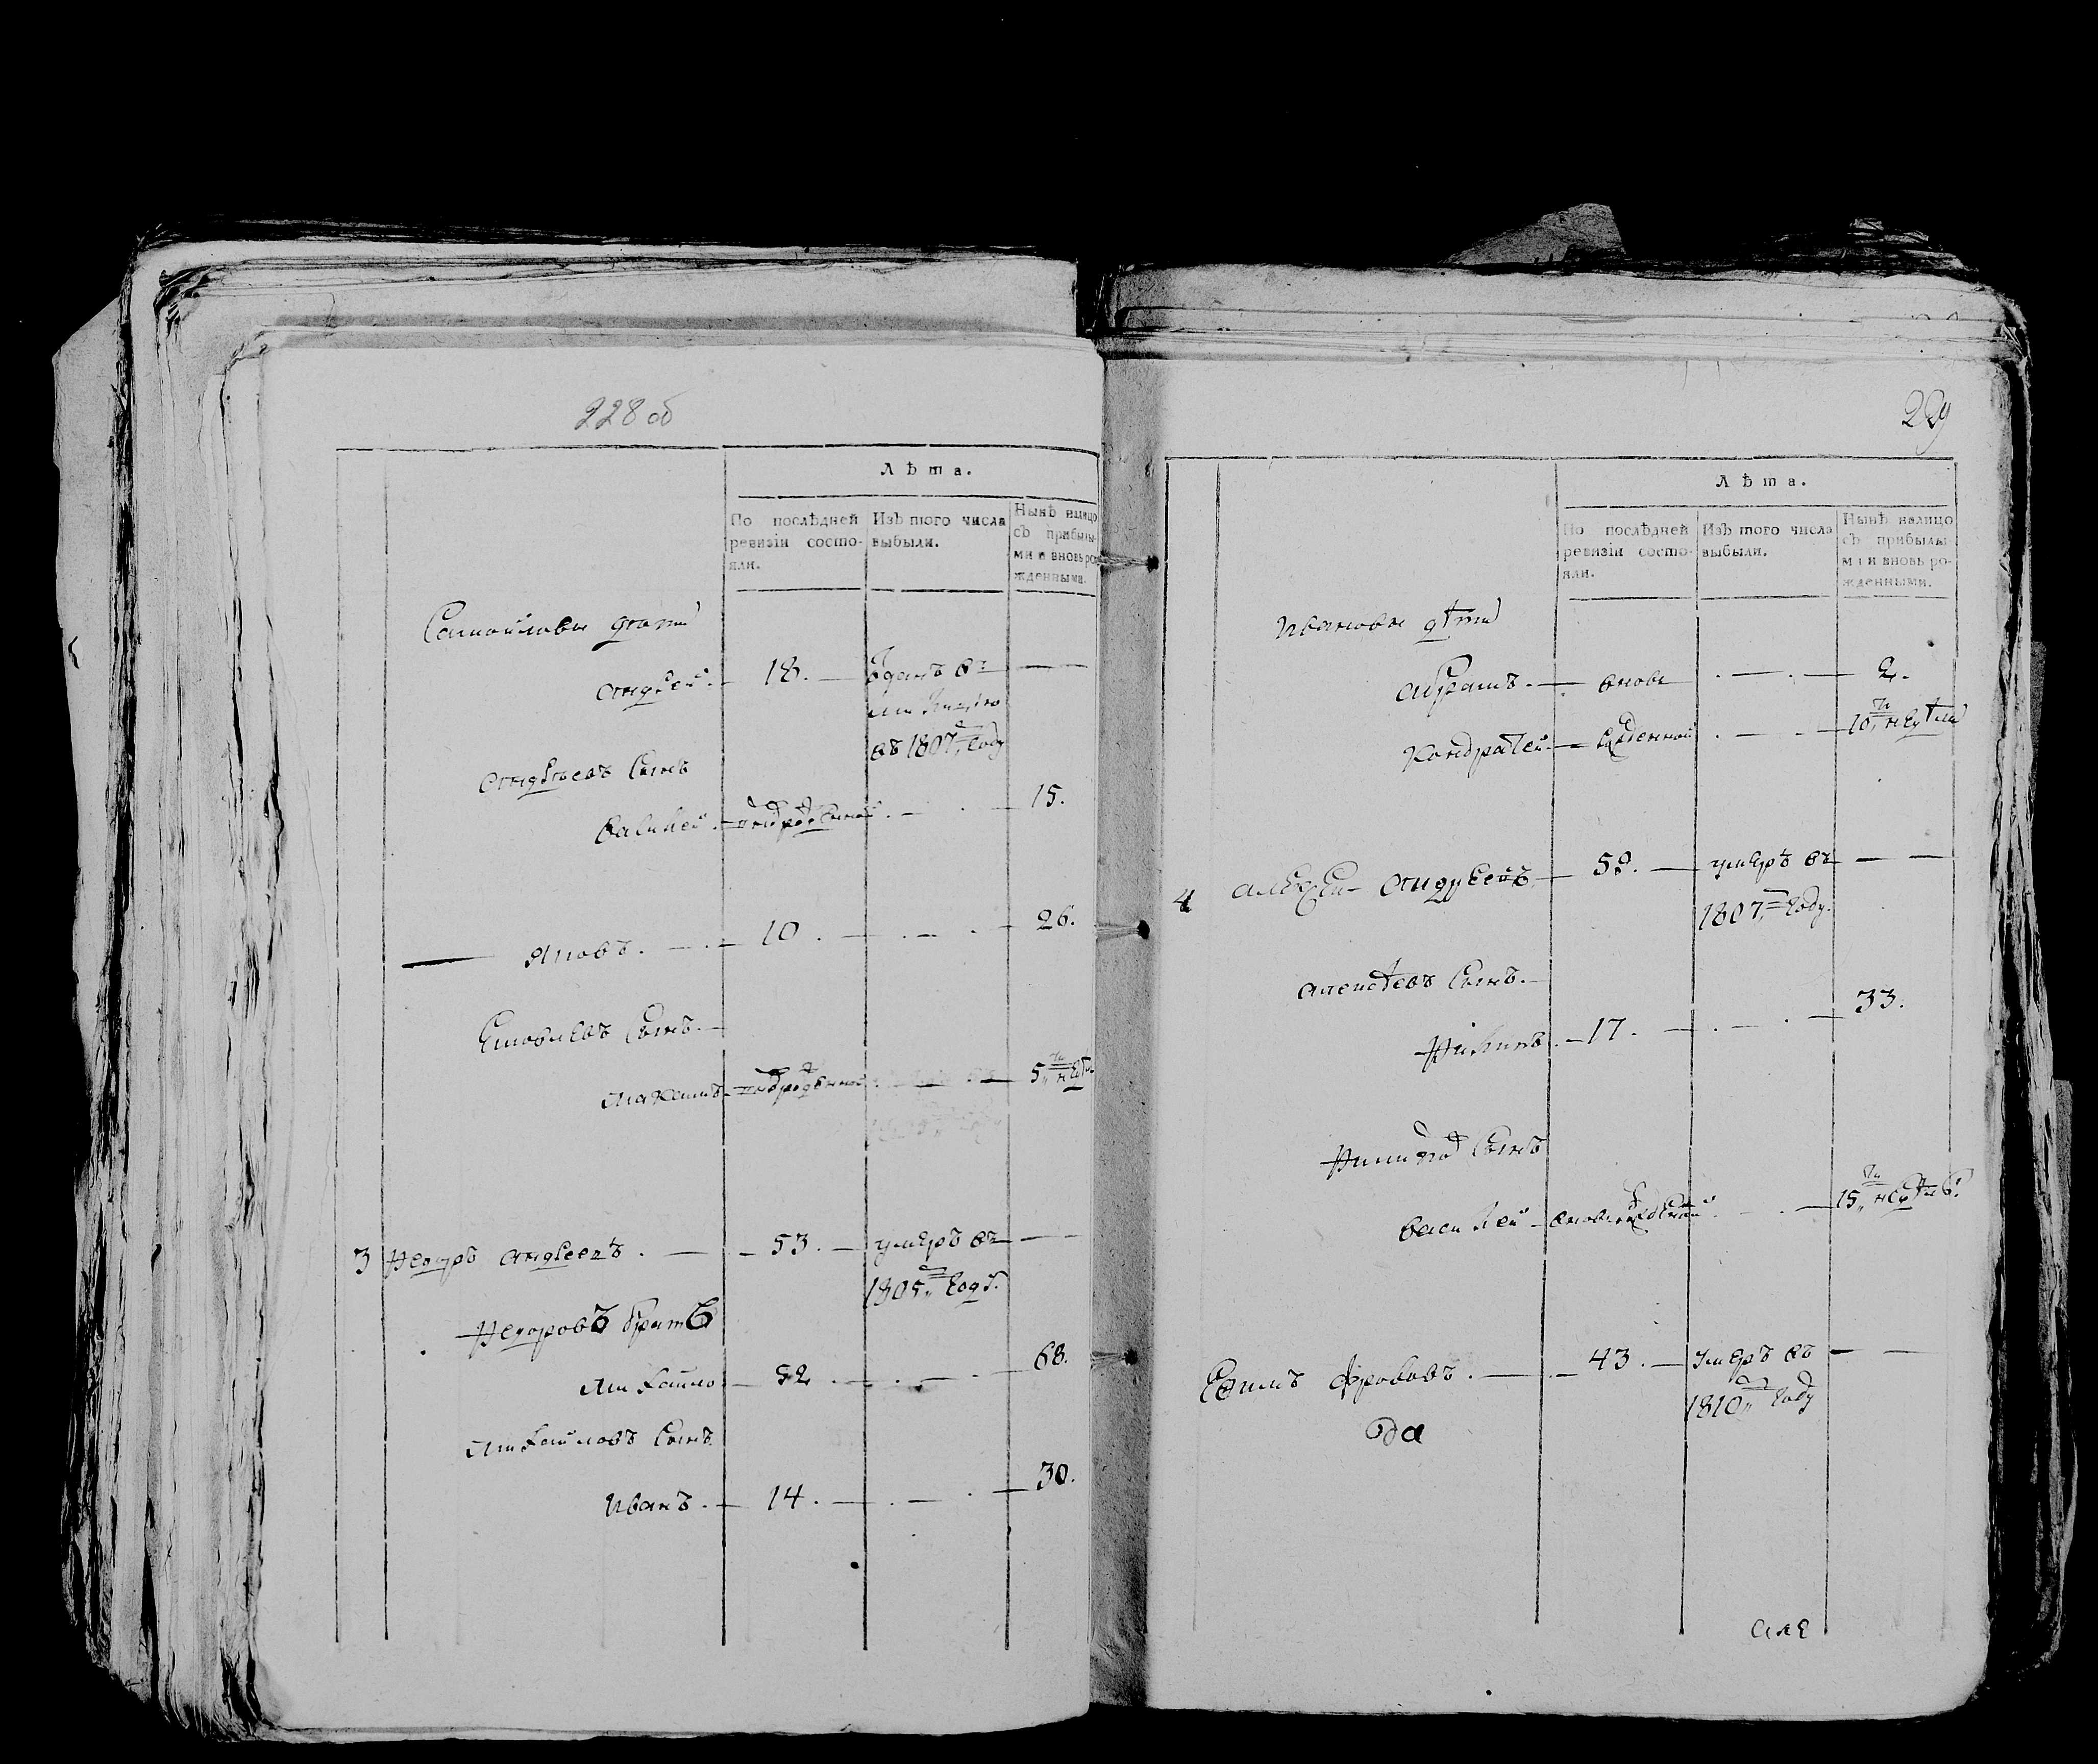 228 об
Лѣта.
По послѣдней
ревизіи состо-
яли.
Изъ того числа
выбыли.
Нынѣ налицо
съ прибылы-
ми и вновь ро-
жденными.
Самойловы дѣти
Андрей. 18. зданъ въ
въ 1807 году
Андреевъ сынъ
Василей. 15.
Яковъ. 10. 26.
Сынъ
5 недѣл
3 Федоръ Андреевъ. 53. умеръ въ
1805 годѣ.
Федоровъ братъ
Михайло 52. 68.
Михайловъ сынъ
Иванъ. 14. 30.
229
Лѣта.
По послѣдней
ревизіи состо-
яли.
Изъ того числа
выбыли.
Нынѣ налицо
съ прибылы-
ми и вновь ро-
жденными.
Ивановы дѣти
Абрамъ. вновь 2.
Кондратей рожденной 10 недѣли
4 Алексей Андреевъ 59. умеръ въ
1807 году.
Алексѣевъ сынъ.
Филипъ. 17. 33.
сынъ
Василей 15 недѣль.
Ефимъ Фроловъ. 43. умеръ въ
1810 году
Але